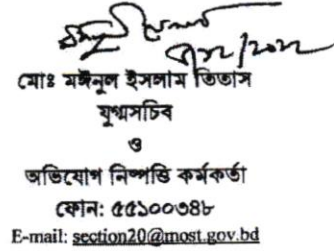 ৭/১২/২০২২
মোঃ মঈনুল ইসলাম তিতাস
যুগ্মসচিব
ও
অভিযোগ নিষ্পত্তি কর্মকর্তা
ফোন: ৫৫১০০৩৪৮
E-mail: section20@most.gov.bd